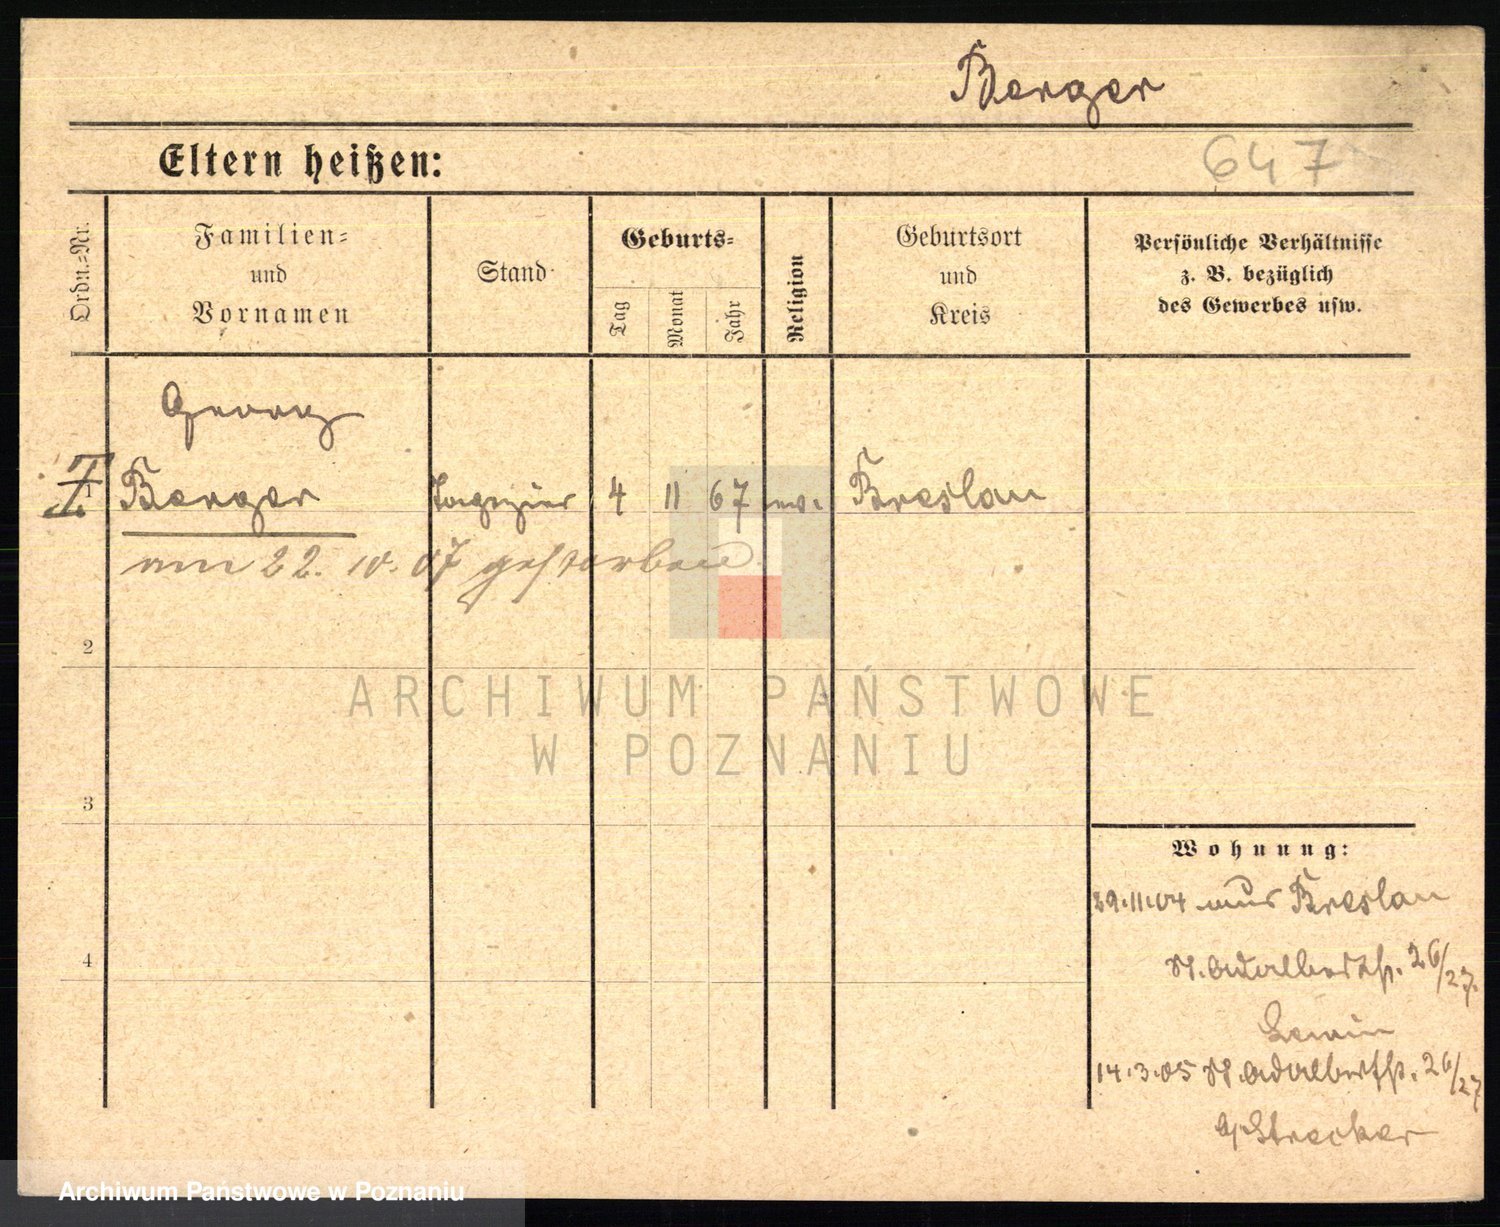 Berger
Eltern heißen:
647
Ordn.=Nr.
Familien=
und
Vornamen
Stand
Geburts=
Tag
Monat
Jahr
Religion
Geburtsort
und
Kreis
Persönliche Verhältnisse
z. B. bezüglich
des Gewerbes usw.
Georg
1 Berger 4 11 67 Breslau
am 22. 10. 07 gestorben
2
3
4
Wohnung:
29.11.04 aus Breslau
St. Adalbertstr. 26/27.
Lewin
14.3.05 St. Adalbertstr. 26/27
Strecker
ARCHIWUM PAŃSTWOWE
W POZNANIU
Archiwum Państwowe w Poznaniu